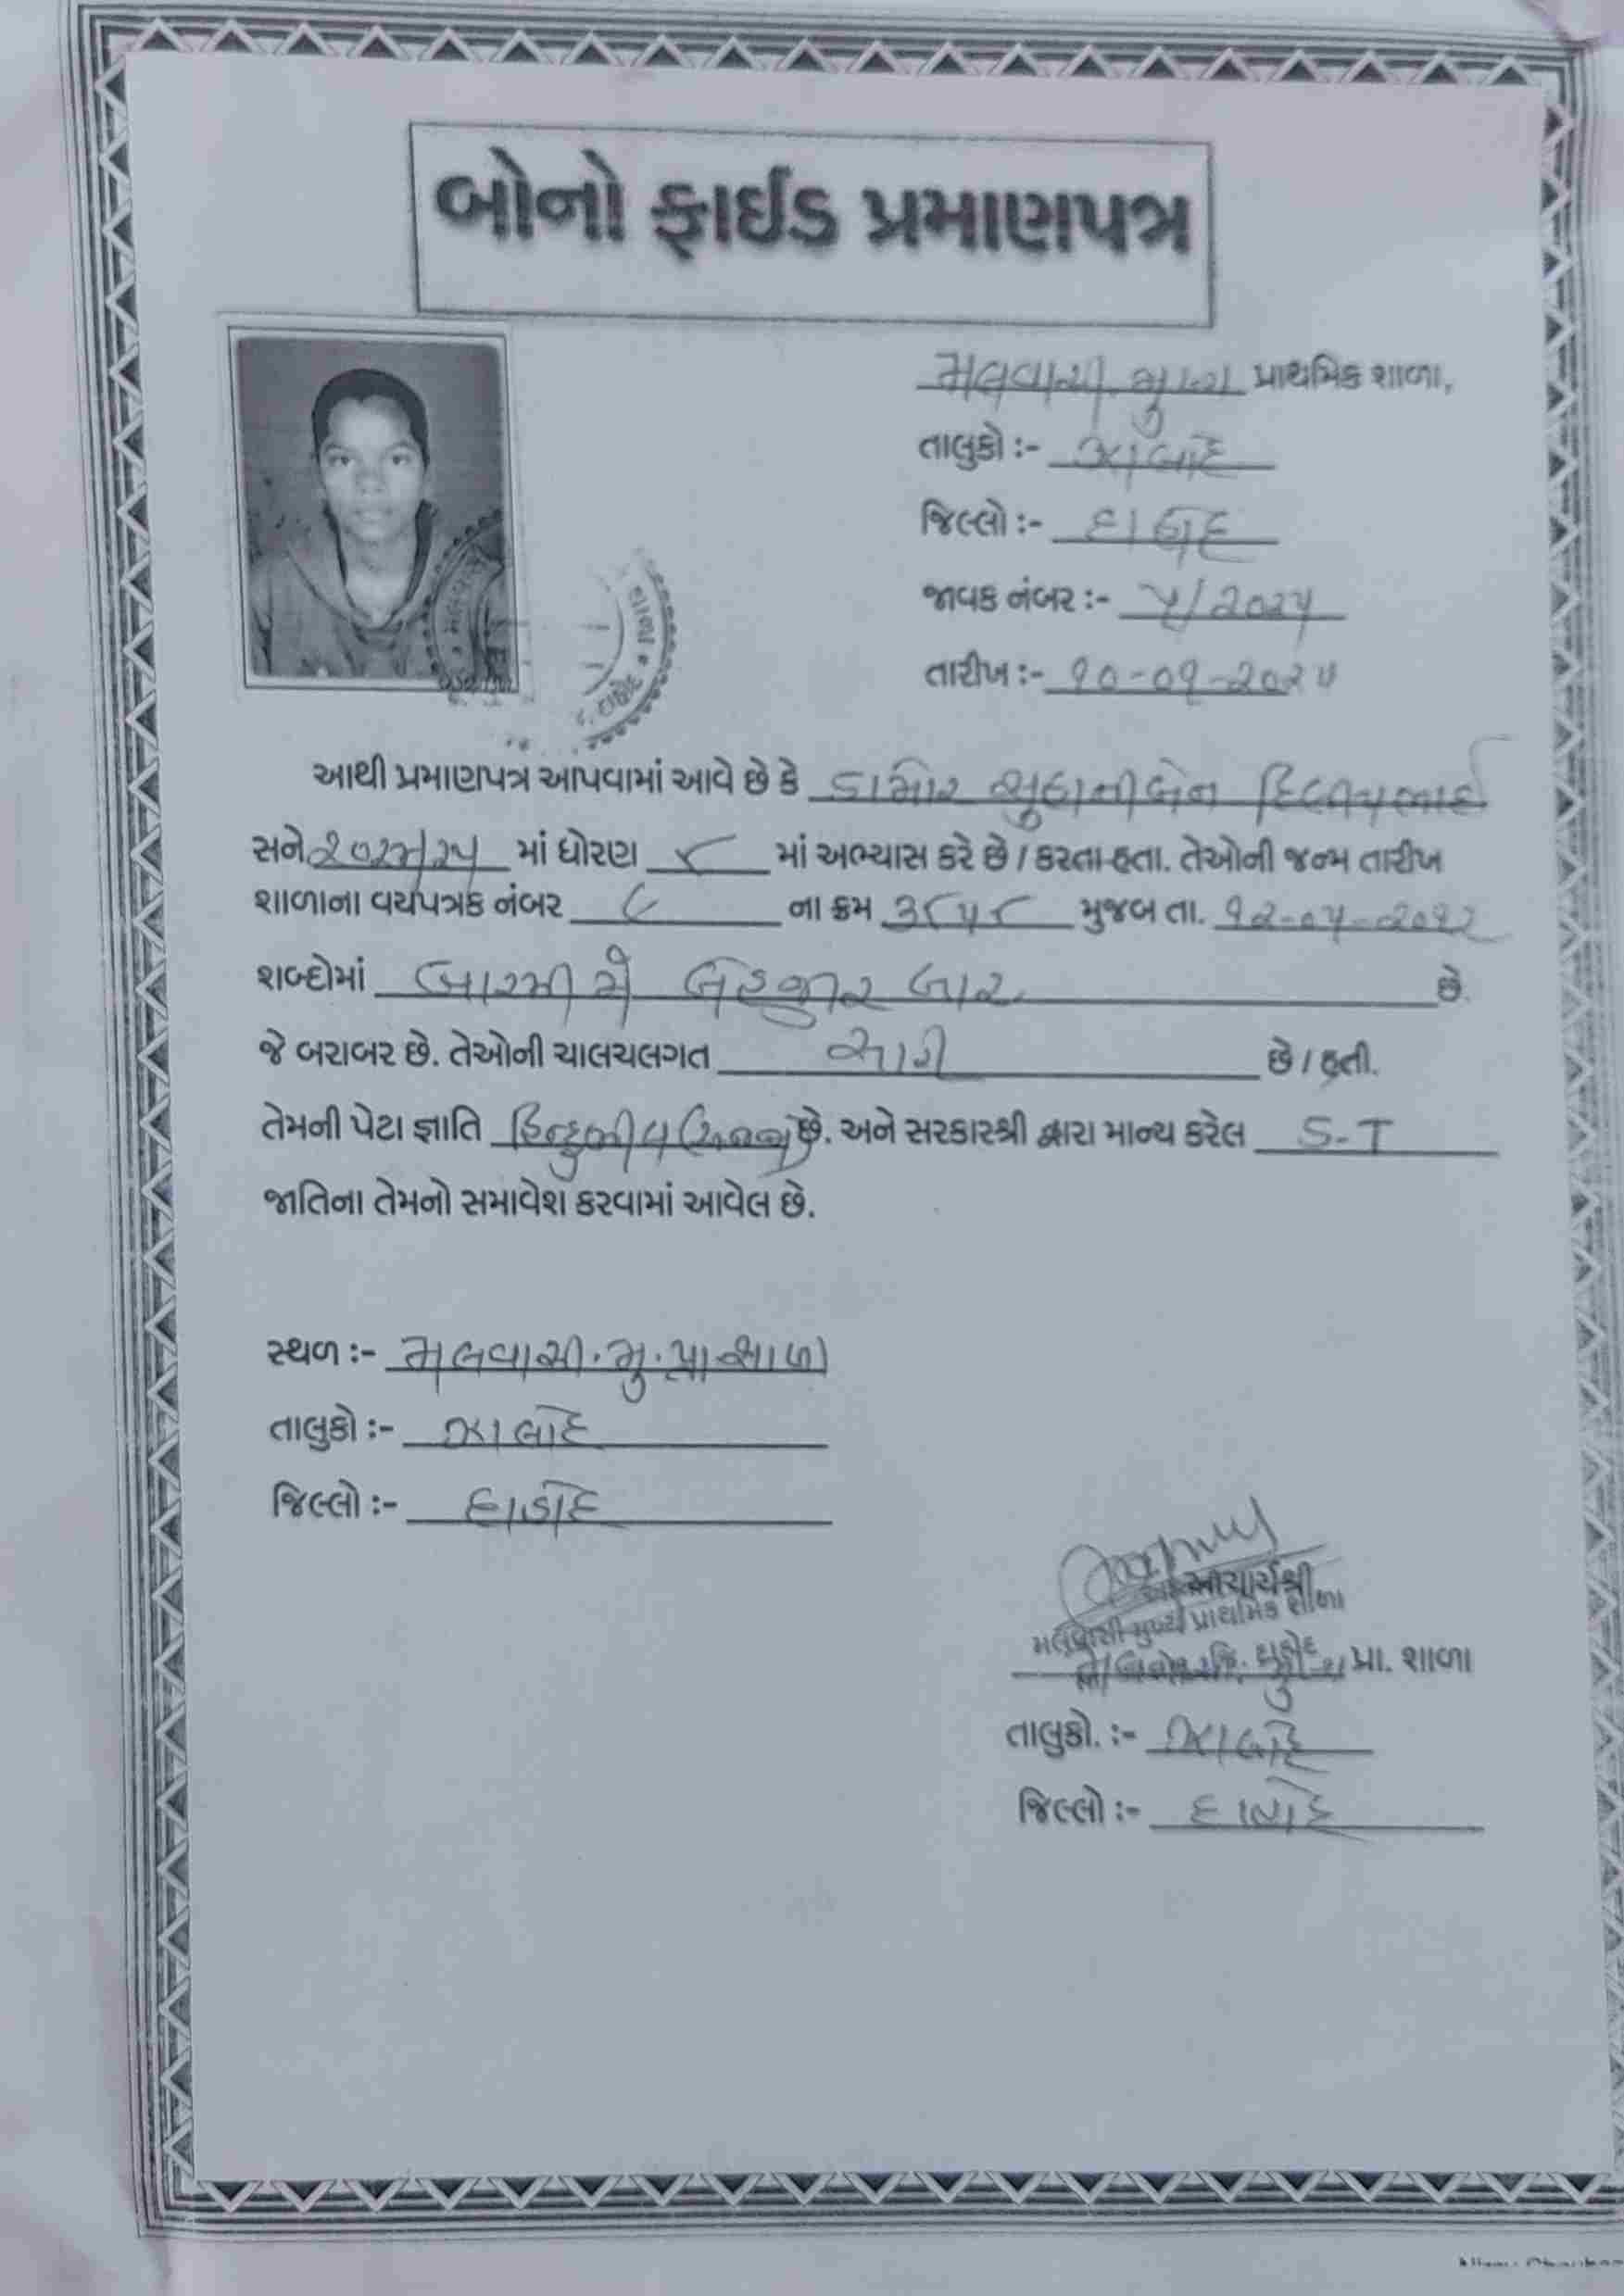 બોનો ફાઈડ પ્રમાણપત્ર
મલવાસી મુખ્ય પ્રાથમિક શાળા,
તાલુકો :- ઝાલોદ
જિલ્લો :- દાહોદ
જાવક નંબર :- ૫/૨૦૨૫
તારીખ :- ૧૦-૦૧-૨૦૨૫
આથી પ્રમાણપત્ર આપવામાં આવે છે કે ડામોર સુહાનીબેન દિલીપભાઈ
સને ૨૦૨૪/૨૫ માં ધોરણ ૮ માં અભ્યાસ કરે છે / કરતા હતા. તેઓની જન્મ તારીખ
શાળાના વયપત્રક નંબર ૯ ના ક્રમ ૩૮૫૮ મુજબ તા. ૧૨-૦૫-૨૦૧૨
શબ્દોમાં બારમી મે બેહજાર બાર છે.
જે બરાબર છે. તેઓની ચાલચલગત સારી છે / હતી.
તેમની પેટા જ્ઞાતિ હિન્દુભીલ છે. અને સરકારશ્રી દ્વારા માન્ય કરેલ S-T
જાતિના તેમનો સમાવેશ કરવામાં આવેલ છે.
સ્થળ :- મલવાસી. મુ. પ્રા શાળા
તાલુકો :- ઝાલોદ
જિલ્લો :- દાહોદ
આચાર્યશ્રી
મલવાસી મુખ્ય પ્રાથમિક શાળા
પ્રા. શાળા
તાલુકો. :- ઝાલોદ
જિલ્લો :- દાહોદ